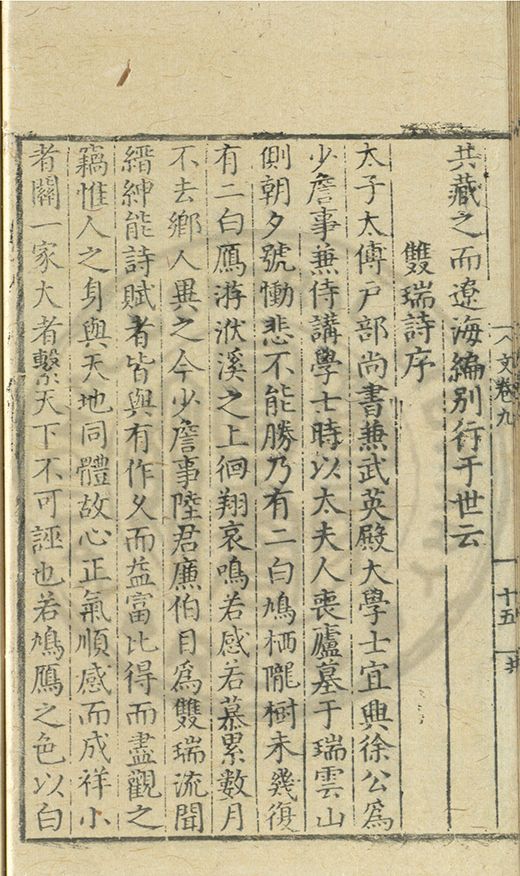 共藏之而遼海編別行于世云
雙瑞詩序
太子太傅戶部尚書兼武英殿大學士宜興徐公爲
少詹事兼侍講學士時以太夫人喪廬墓于瑞雲山
側朝夕號慟悲不能勝乃有二白鳩栖隴樹未幾復
有二白鴈游洑溪之上徊翔哀鳴若感若慕累數月
不去鄉人異之今少詹事陸君廉伯目爲雙瑞流聞
縉紳能詩賦者皆與有作久而益富比得而盡觀之
竊惟人之身與天地同體故心正氣順感而成祥小
者關一家大者繫天下不可誣也若鳩鴈之色以白
文卷九
十五